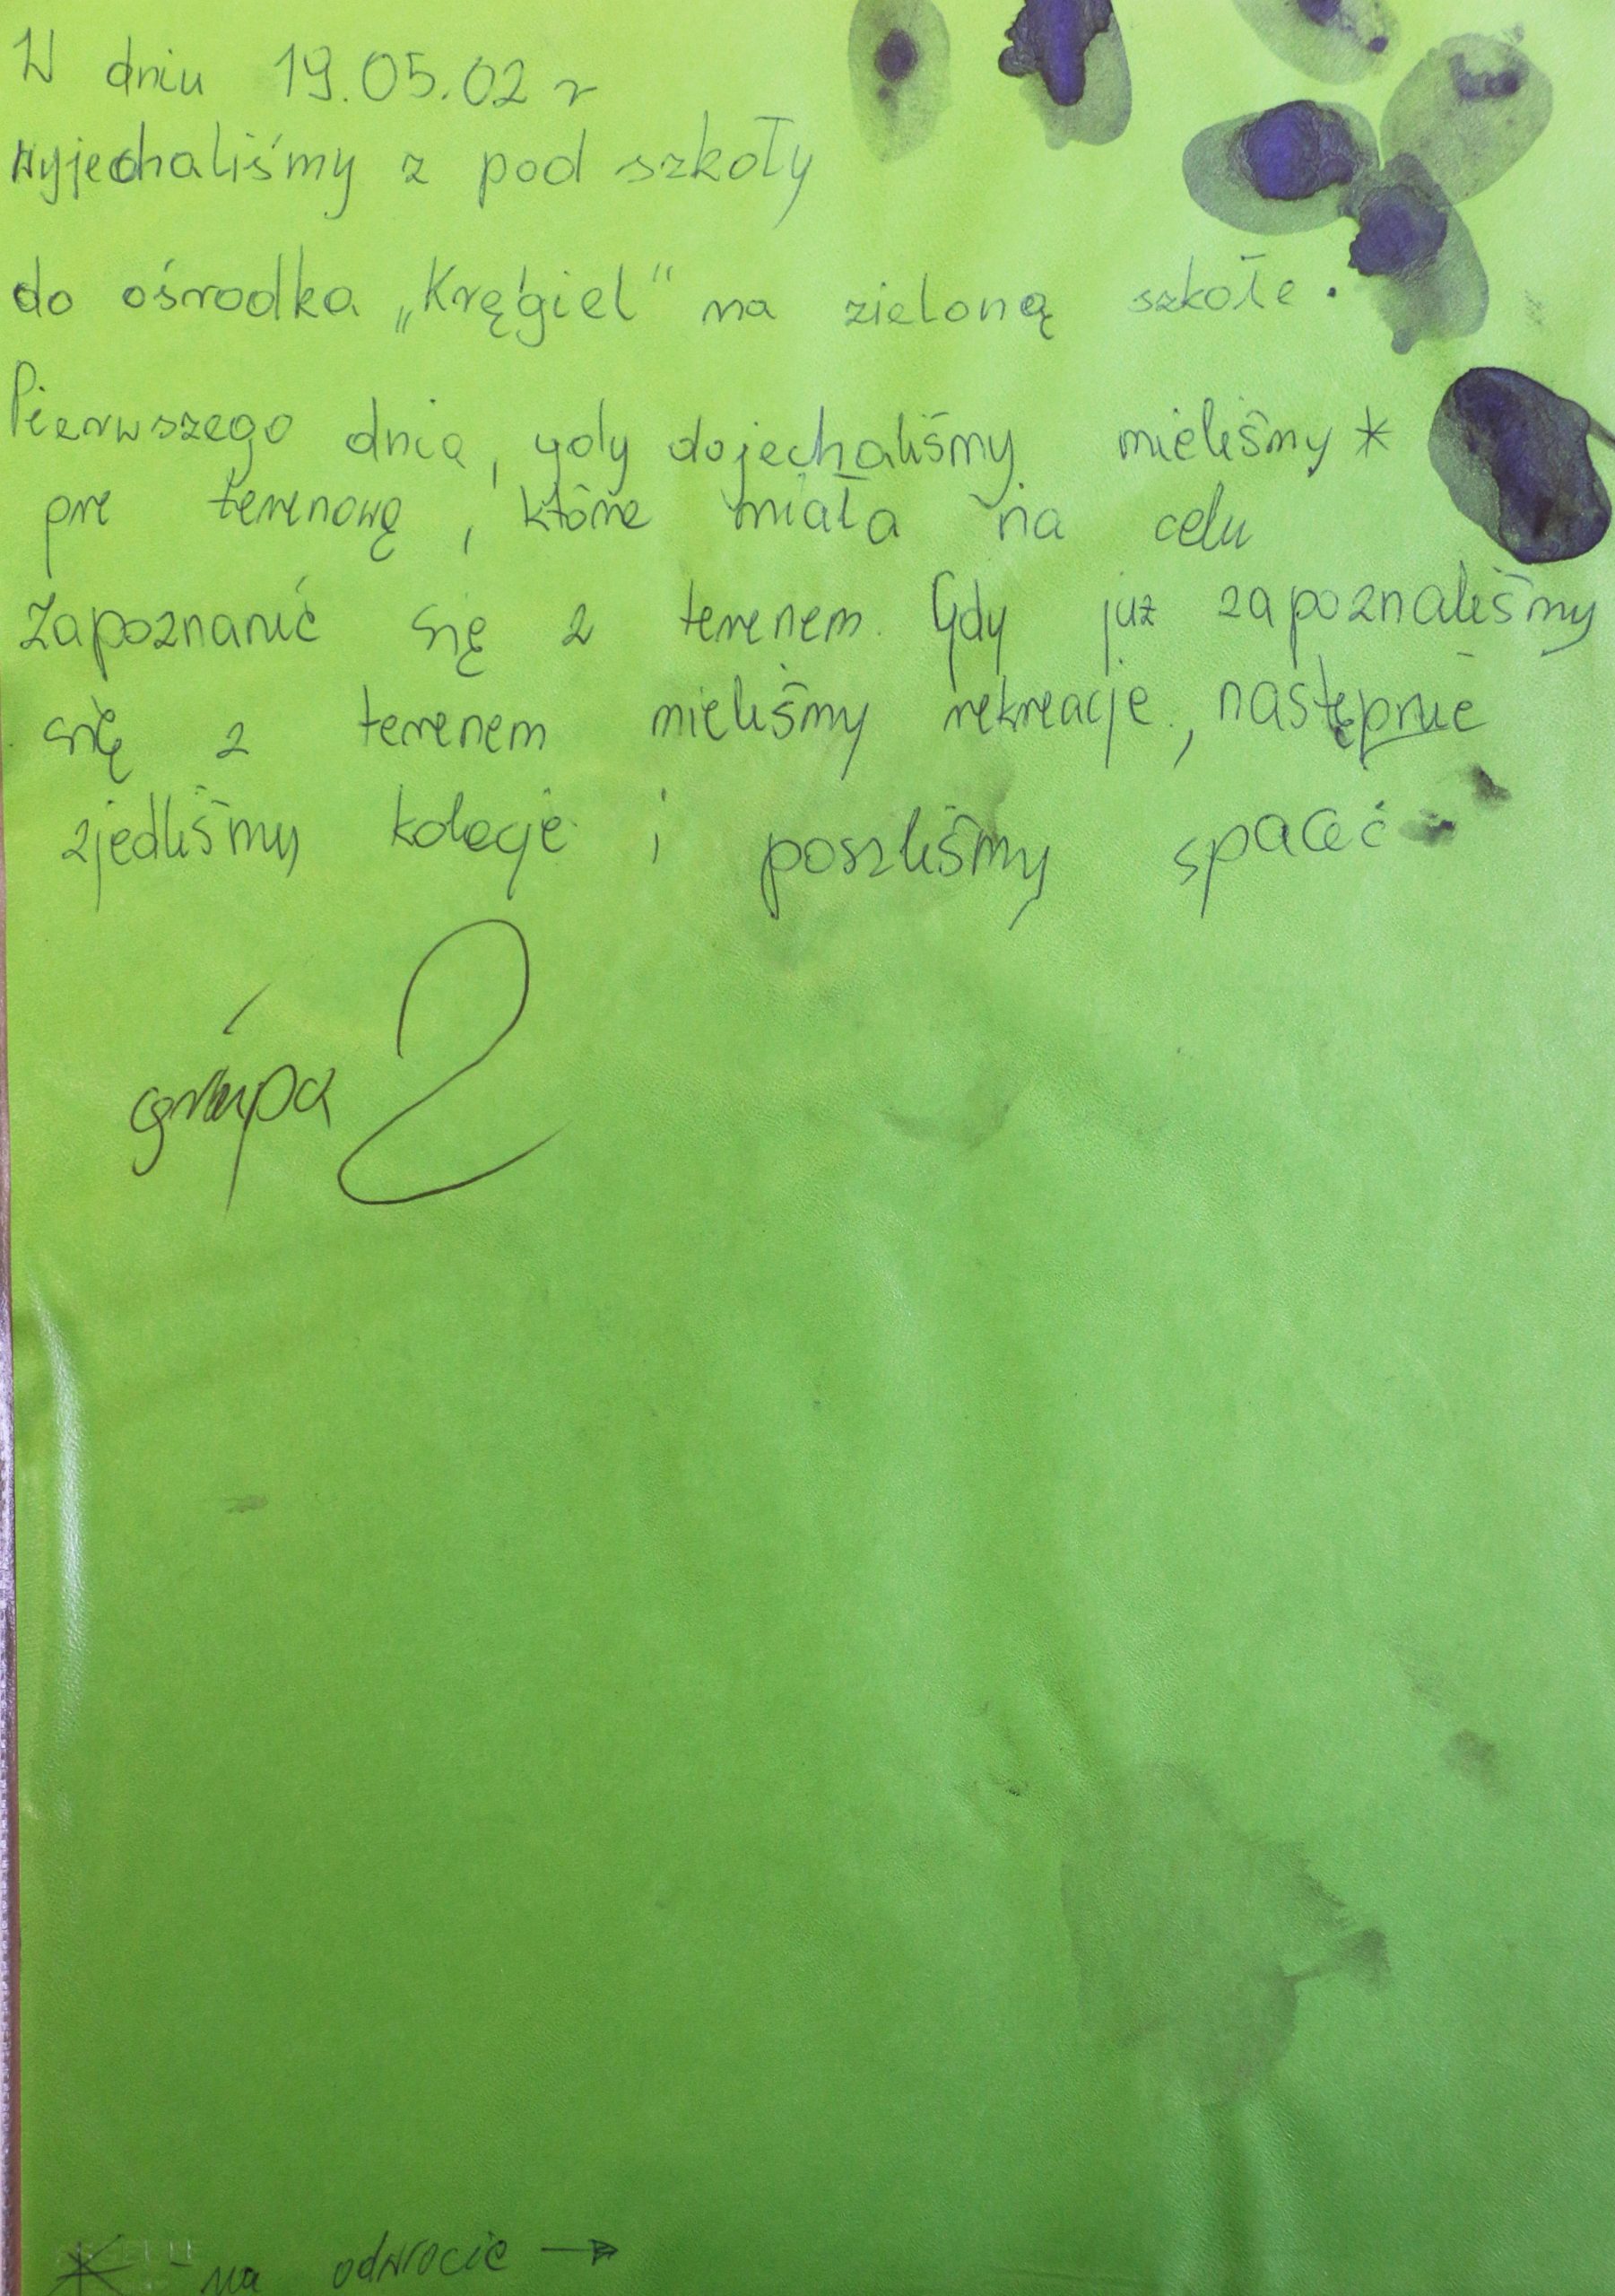 W dniu 19.05.02 r
wyjechaliśmy z pod szkoły
do ośrodka „Kręgiel" na zieloną szkołe.
Pierwszego dnia, gdy dojechaliśmy mieliśmy *
grę terenową, które miała na celu
Zapoznanić się z terenem. Gdy już zapoznaliśmy
się z terenem mieliśmy rekreacje, następnie
zjedliśmy kolacje i poszliśmy spać
grupa 2
* - na odwrocie →